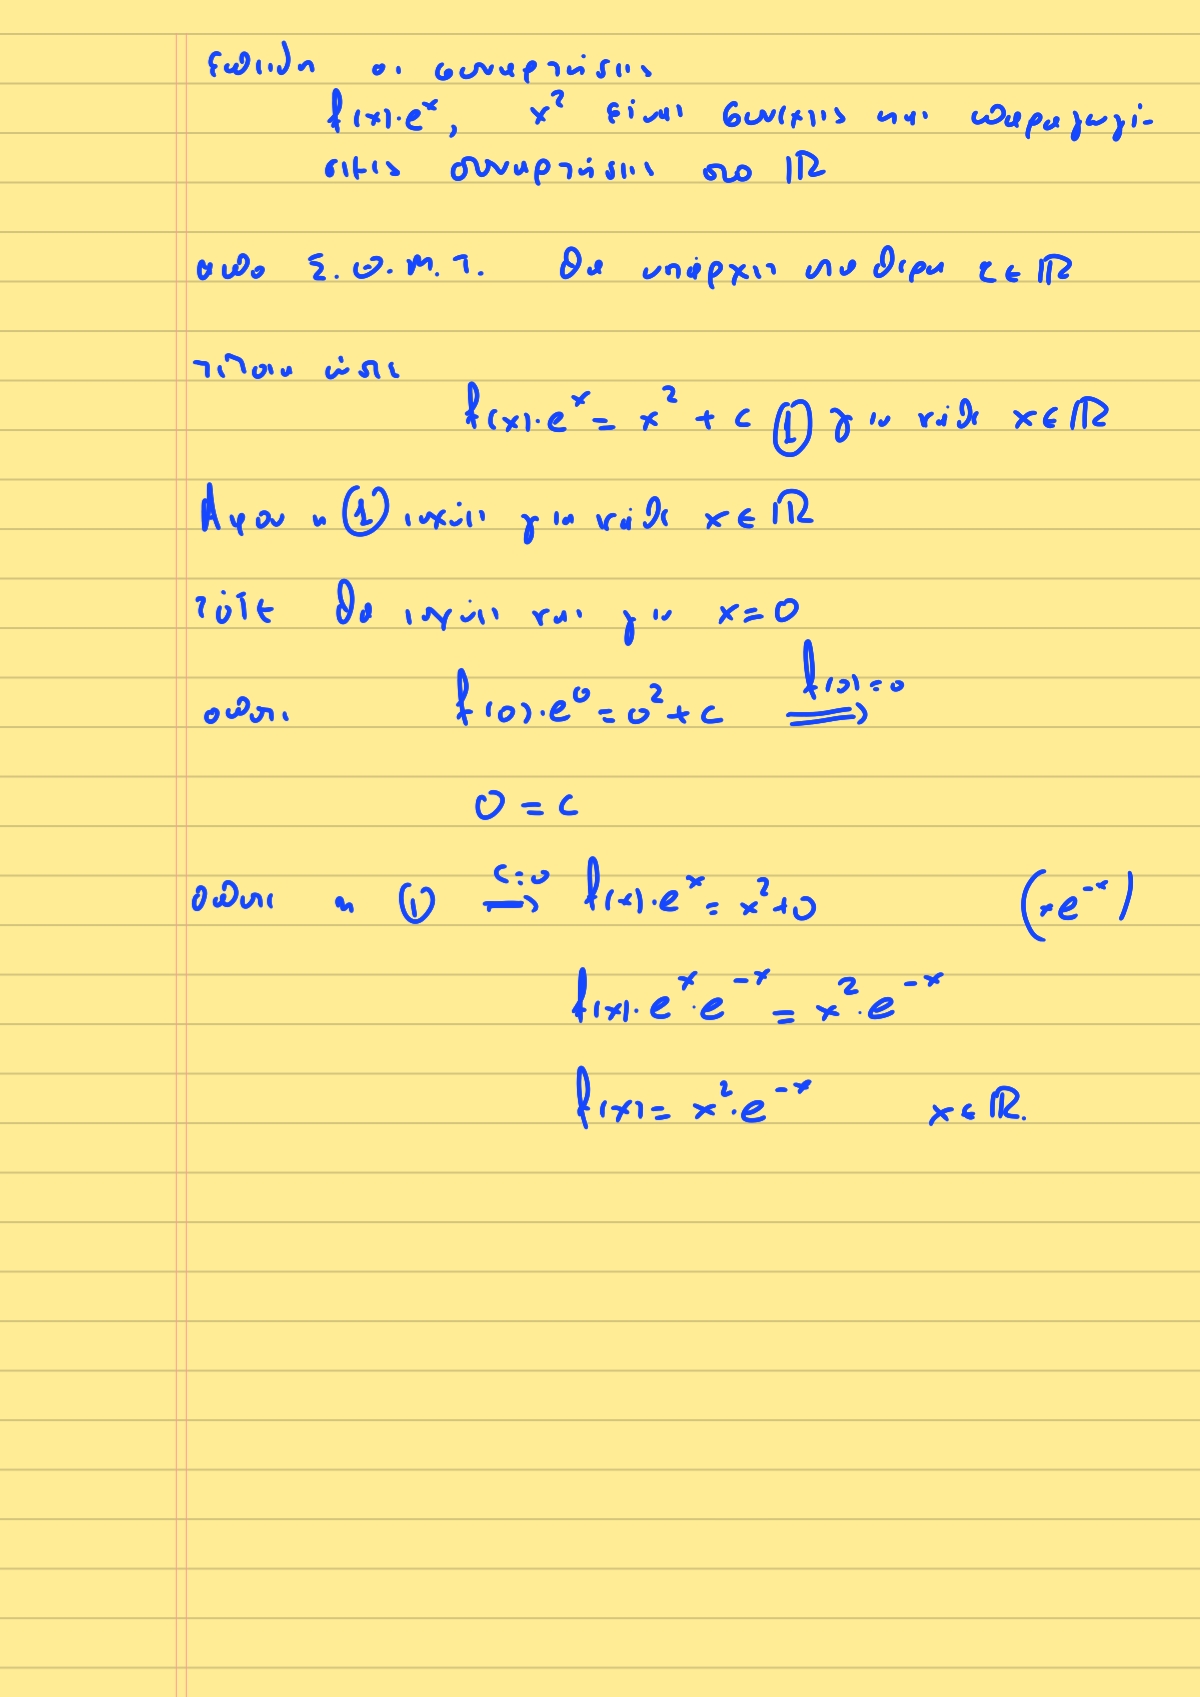 επειδή οι συναρτήσεις
f(x)·e^x, x² είναι συνεχείς και παραγωγί-
σιμες συναρτήσεις στο ℝ
από Σ.Θ.Μ.Τ. θα υπάρχει σταθερα c∈ℝ
τέτοια ώστε
f(x)·e^x = x² + c ① για κάθε x∈ℝ
Αφου η ① ισχύει για κάθε x∈ℝ
τότε θα ισχύει και για x=0
οπότε f(0)·e^0 = 0² + c f(0)=0 ⟹
0 = c
οπότε η ① c=0 ⟹ f(x)·e^x = x²+0 (×e^-x)
f(x)·e^x·e^-x = x²·e^-x
f(x) = x²·e^-x x∈ℝ.